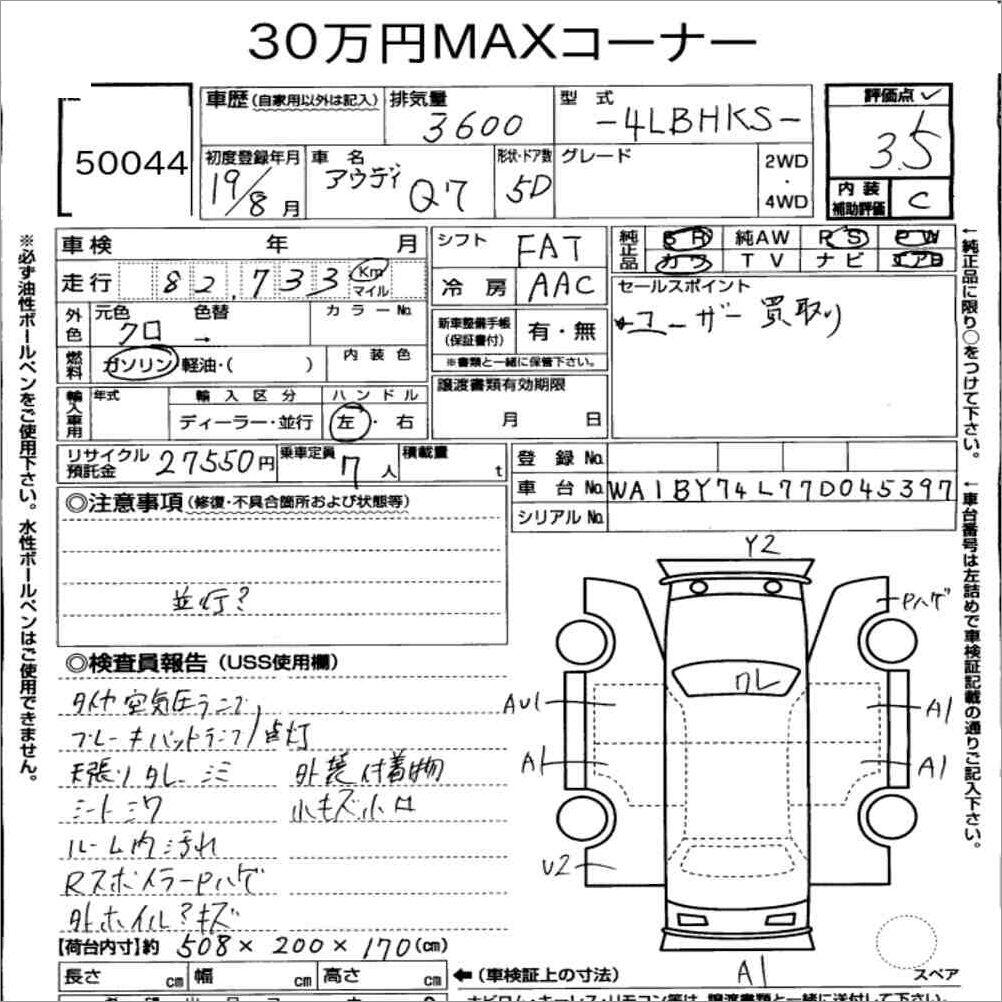 30万円MAXコーナー
50044
車歴 (自家用以外は記入)
排気量 3600
型式 -4LBHKS-
評価点 ✓ 3.5
初度登録年月 19/8月
車名 アウディ Q7
形状・ドア数 5D
グレード
2WD・4WD
内装補助評価 C
車検 年 月
シフト FAT
純正品 純AW PS PW
カワ TV ナビ エアB
走行 82,733 Km マイル
冷房 AAC
セールスポイント
ユーザー買取り
外色 元色 クロ → 色替 カラーNo.
新車整備手帳(保証書付) 有・無
※書類と一緒に保管下さい。
燃料 ガソリン 軽油・( ) 内装色
譲渡書類有効期限
月 日
輸入車用 年式 輸入区分 ハンドル
ディーラー・並行 左・右
リサイクル預託金 27550円 乗車定員 7人 積載量 t
登録No.
車台No. WA1BY74L77D045397
シリアルNo.
◎注意事項 (修復・不具合箇所および状態等)
並行?
◎検査員報告 (USS使用欄)
タイヤ空気圧ランプ
ブレーキパットランプ点灯
天張りタレ シミ 外装付着物
シートシワ 小キズ小凹
ルーム内汚れ
Rスポイラー Pハゲ
外ホイル?キズ
【荷台内寸】約 508×200×170(cm)
長さ cm 幅 cm 高さ cm ←(車検証上の寸法)
Y2
Pハゲ
ワレ
AU1
A1
A1
A1
U2
A1
スペア
※必ず油性ボールペンをご使用下さい。水性ボールペンはご使用できません。
←純正品に限り○をつけて下さい。
←車台番号は左詰めで車検証記載の通りご記入下さい。